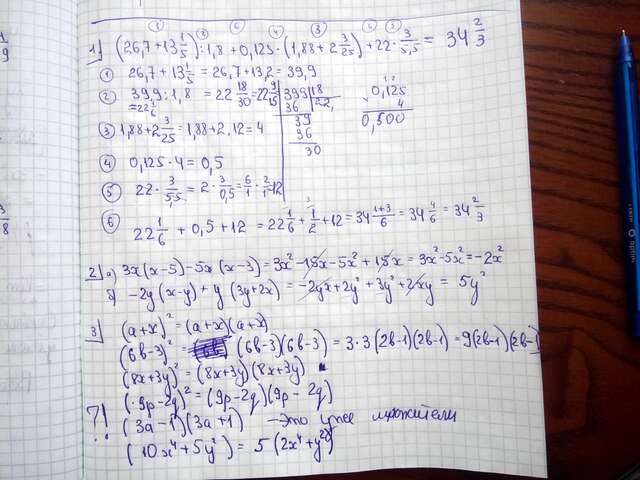 1) (26,7 + 13 1/5) : 1,8 + 0,125 · (1,88 + 2 3/25) + 22 · 3/5,5 = 34 2/3
① 26,7 + 13 1/5 = 26,7 + 13,2 = 39,9
② 39,9 : 1,8 = 22
③ 1,88 + 2 3/25 = 1,88 + 2,12 = 4
④ 0,125 · 4 = 0,5
0,125
4
0,500
39,9 | 1,8
36
39
36
30
⑤ 22 · 3/5,5
⑥ 22 1/6 + 0,5 + 12 = 22 1/6 + 1/2 + 12 = 34 1+3/6 = 34 4/6 = 34 2/3
2) 3x(x-5) - 5x(x-3) = 3x² - 15x - 5x² + 15x = 3x² - 5x² = -2x²
-2y(x-y) + y(3y+2x) = -2yx + 2y² + 3y² + 2xy = 5y²
3) (a+x)² = (a+x)(a+x)
(6b-3)² = (6b-3)(6b-3) = 3·3(2b-1)(2b-1) = 9(2b-1)(2b-1)
(8x+3y)² = (8x+3y)(8x+3y)
(9p-2y)² = (9p-2y)(9p-2y)
7) (3a-1)(3a+1) - это уже множители